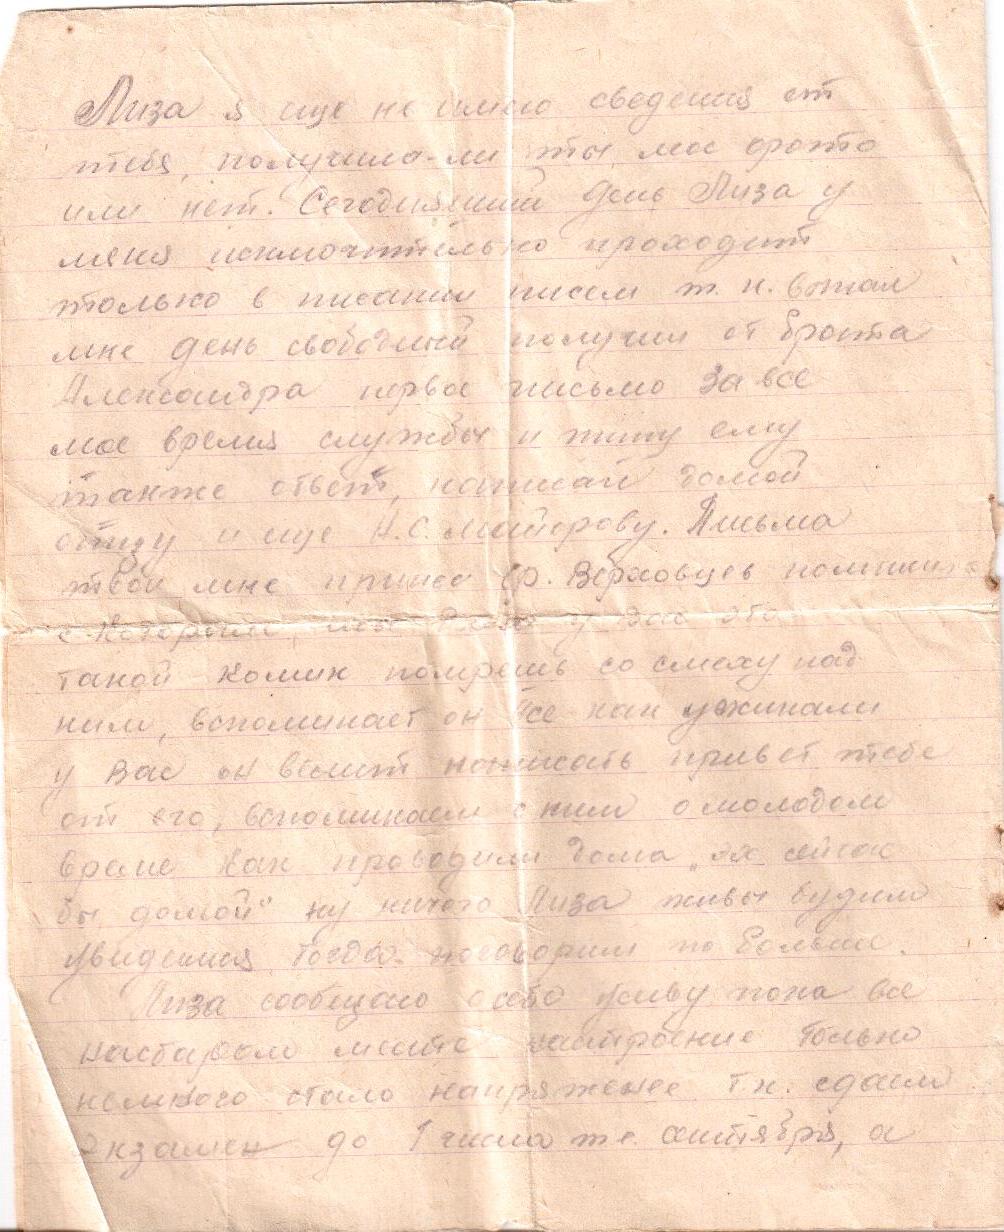 Лиза я еще не имею сведения от
тебя, получила-ли ты мое фото
или нет. Сегодняшний день Лиза у
меня исключительно проходит
только в писании писем т. к. выпал
мне день свободный получил от брата
Александра первое письмо за все
мое время службы и пишу ему
также ответ, написал домой
отцу и еще Н.С. Майорову. Письма
твои мне принес Ф. Верховцев помнишь
с которым у Вас
такой комик помрешь со смеху над
ним, вспоминает он все как ужинали
у Вас он велит написать привет тебе
от его, вспоминаем с ним о молодом
време как проводили дома „эх сейчас
бы домой" ну ничего Лиза живы будим
увидемся тогда поговорим по больше.
Лиза сообщаю о себе живу пока все
на старом месте настроение только
немного стало напряженее т.к. сдаем
экзамен до 1 числа же сентября, а